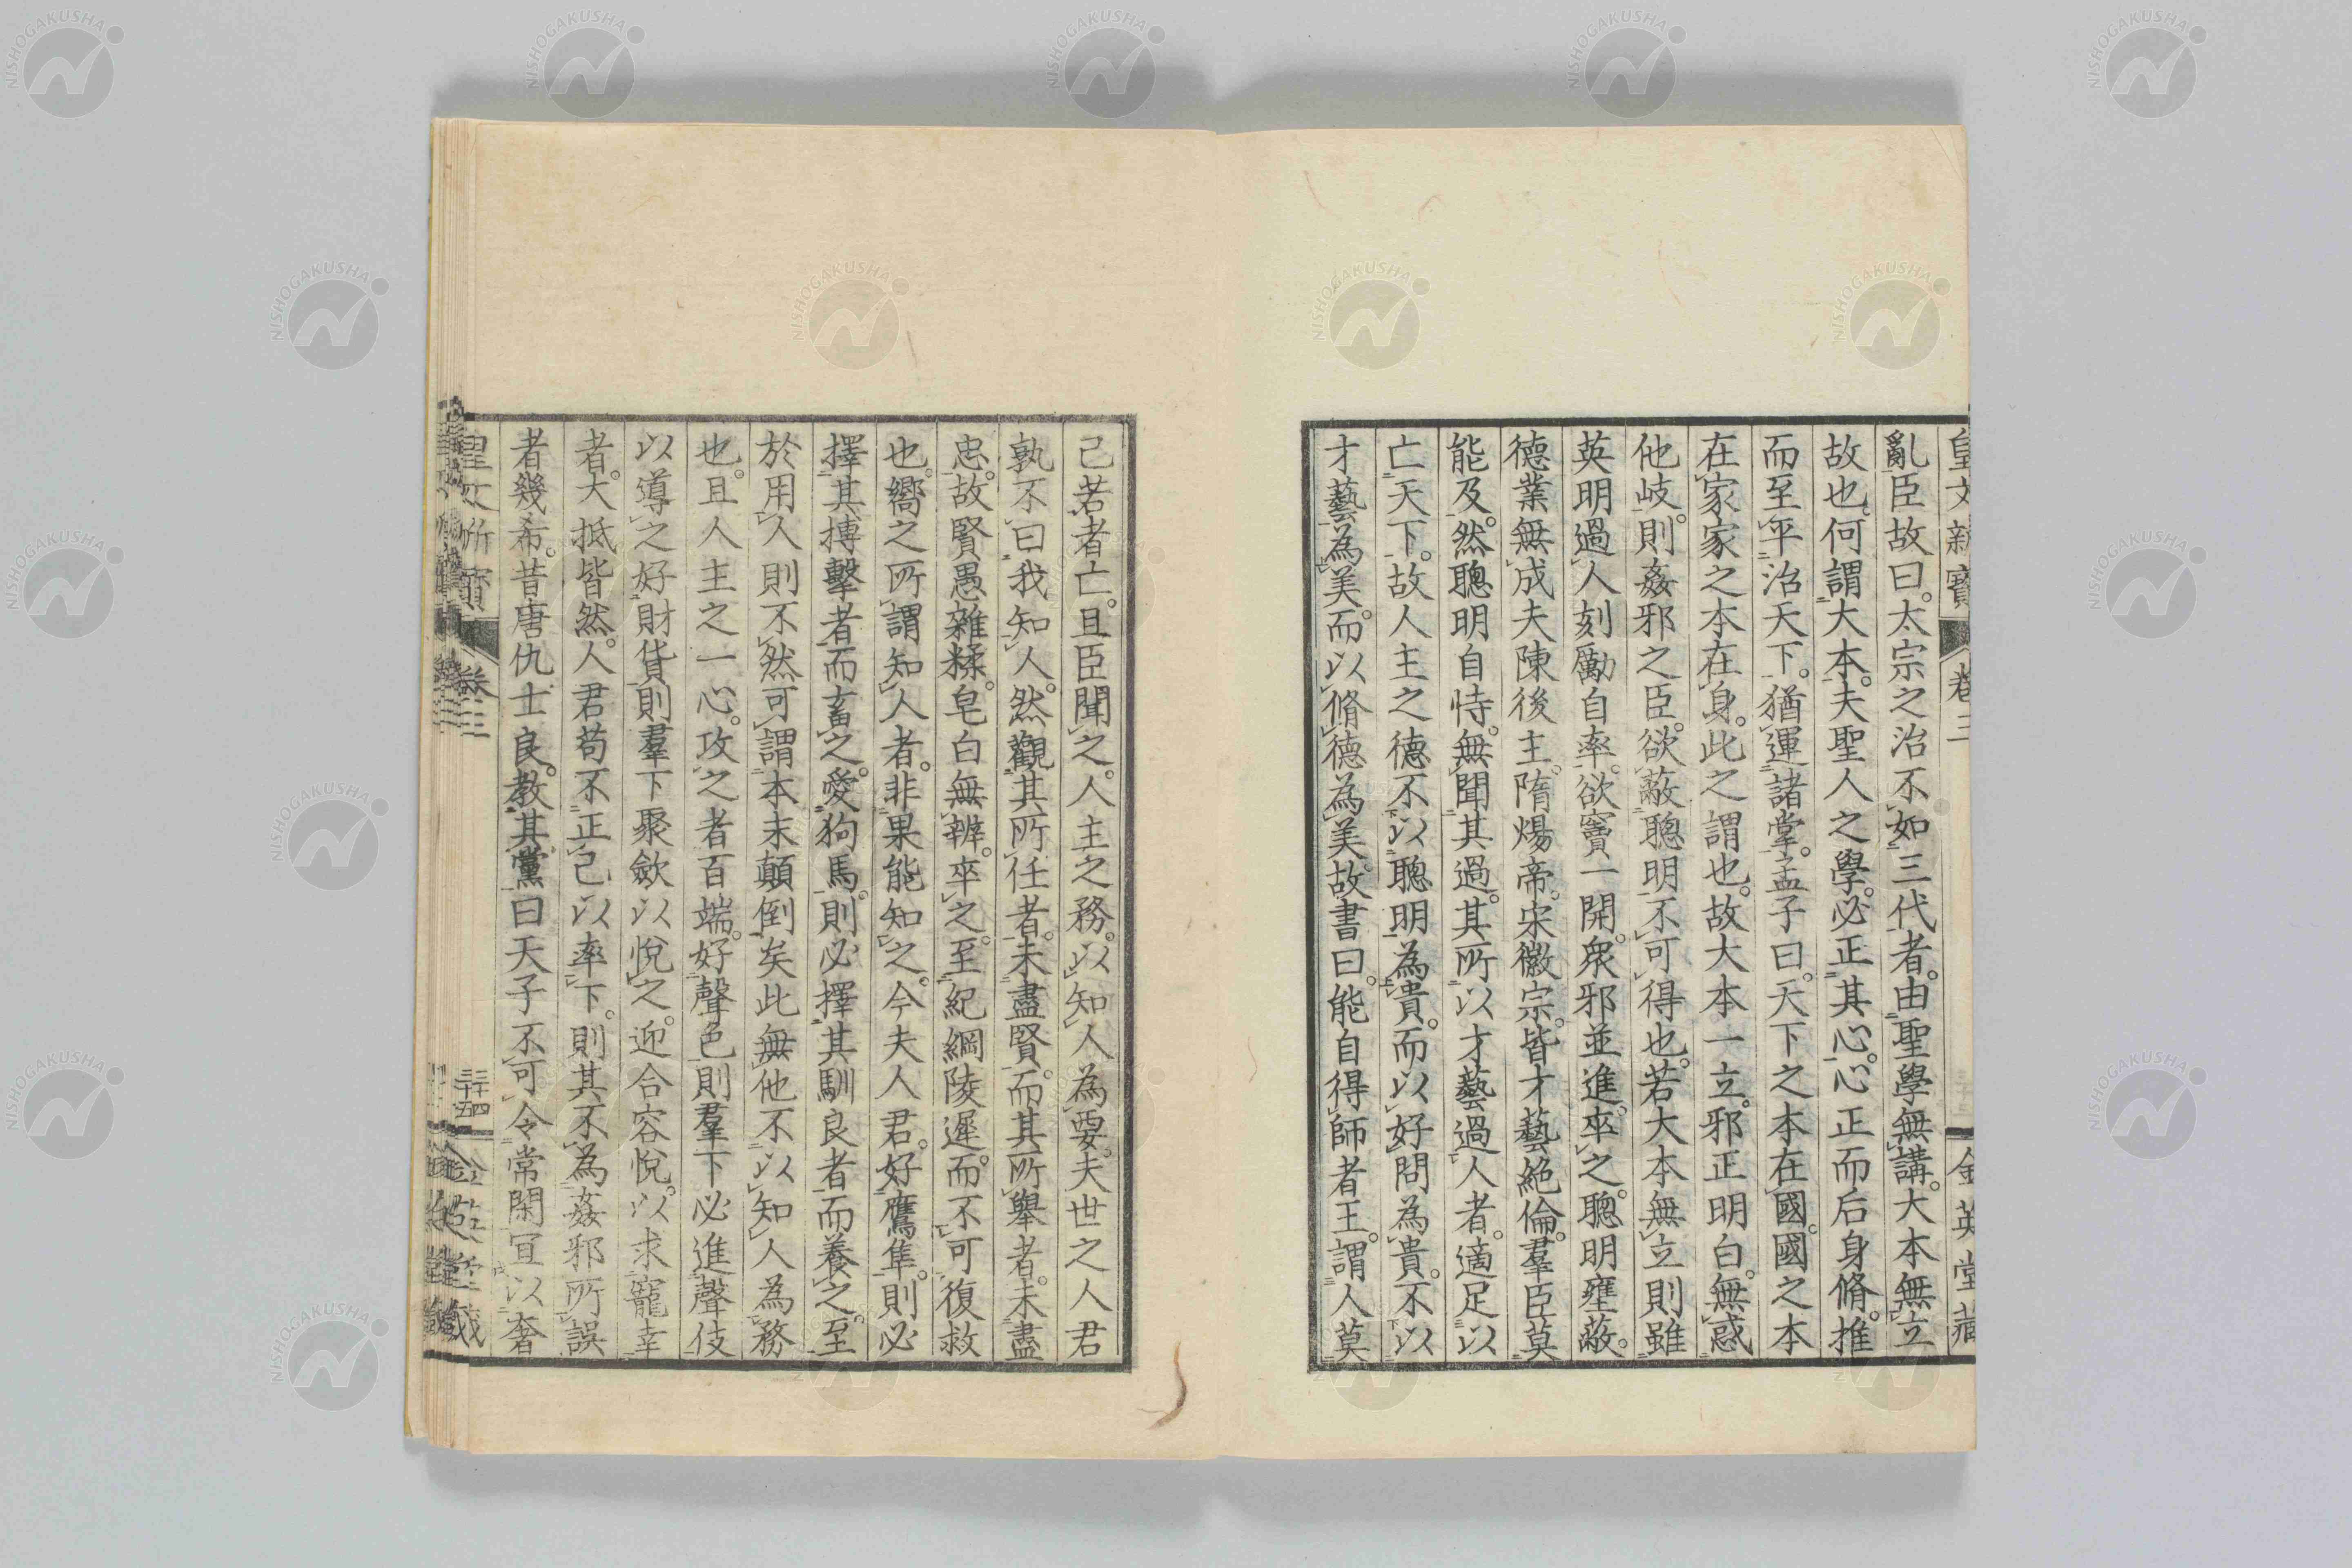 皇文新寶　卷三　金英堂藏
亂臣故曰。太宗之治不如三代者。由聖學無講。大本無立
故也。何謂大本。夫聖人之學。必正其心。心正而后身脩。推
而至平治天下。猶運諸掌。孟子曰。天下之本在國。國之本
在家家之本在身。此之謂也。故大本一立。邪正明白。無惑
他岐。則姦邪之臣。欲蔽聰明不可得也。若大本無立則雖
英明過人刻勵自率。欲竇一開。衆邪並進。卒之聰明壅蔽。
德業無成夫陳後主。隋煬帝。宋徽宗。皆才藝絕倫。羣臣莫
能及。然聰明自恃。無聞其過。其所以才藝過人者。適足以
亡天下。故人主之德不以聰明為貴。而以好問為貴。不以
才藝為美。而以脩德為美。故書曰。能自得師者王。謂人莫
己若者亡。且臣聞之。人主之務。以知人為要。夫世之人君
孰不曰我知人。然觀其所任者。未盡賢。而其所舉者。未盡
忠。故賢愚雜糅。皂白無辨。卒之。至紀綱陵遲。而不可復救
也。嚮之所謂知人者。非果能知之。今夫人君。好鷹隼。則必
擇其搏擊者而畜之。愛狗馬。則必擇其馴良者而養之。至
於用人則不然可謂本末顛倒矣此無他不以知人為務
也。且人主之一心。攻之者百端。好聲色則羣下必進聲伎
以導之好財貨則羣下聚斂以悅之。迎合容悅。以求寵幸
者。大抵皆然。人君苟不正己以率下。則其不為姦邪所誤
者幾希。昔唐仇士良。教其黨曰天子不可令常閑宜以奢